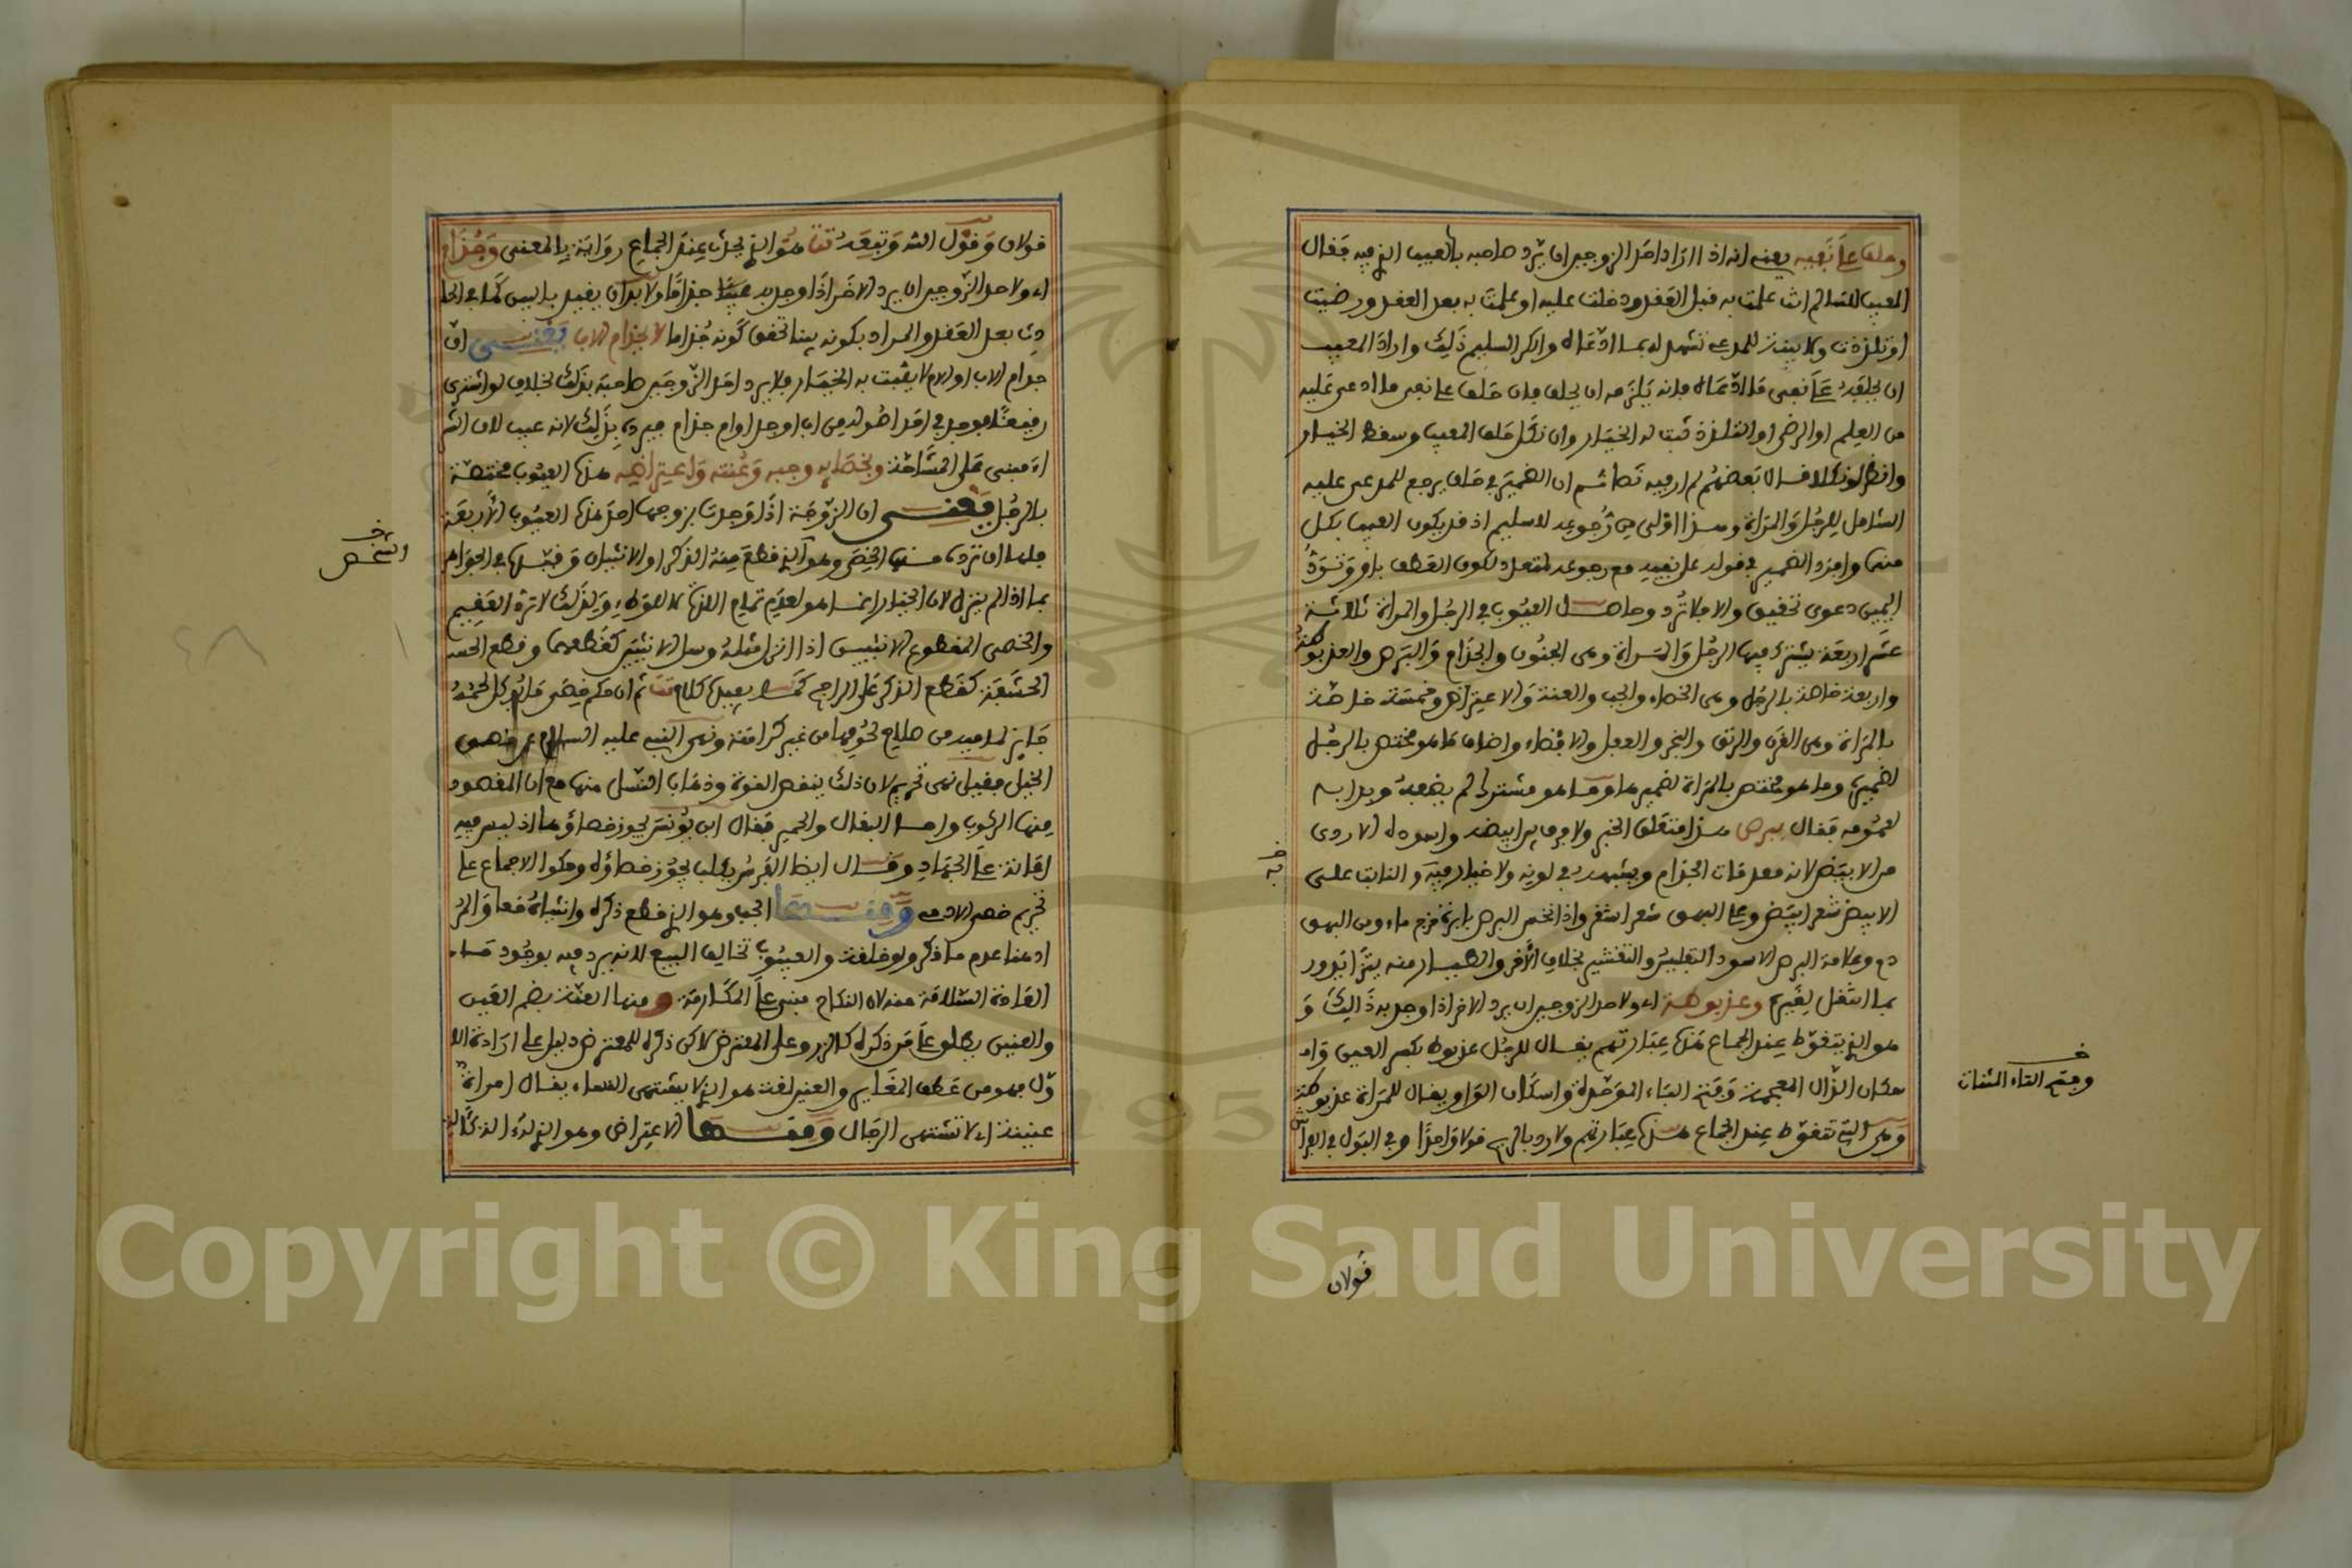 وحلف على نفيه يعني انه اذا اراد احد الزوجين ان يرد صاحبه بالعيب الذي فيه فقال
المعيب للسالم انت علمت به قبل العقد ودخلت عليه او علمت به بعد العقد ورضيت
او تلذذت ولا بينة للمدعي تشهد له بما ادعاه وانكر السليم ذلك واراد المعيب
ان يحلفه على نفي ما ادعاه فانه يلزمه ان يحلف فان حلف على نفي ما ادعى عليه
من العلم او الرضى او التلذذ ثبت له الخيار وان نكل حلف المعيب وسقط الخيار
الشامل للرجل والمراة وهذا اولى من رجوعه للسليم اذ قد يكون العيب بكل
منهما وافرد الضمير في قوله على نفيه مع رجوعه لمتعدد لكون العطف باو
اليمين دعوى تحقيق والا فلا ترد وحاصل العيوب في الرجل والمراة ثلاثة
عشر اربعة يشترك فيها الرجل والمراة وهي الجنون والجذام والبرص والعذيوطة
واربعة خاصة بالرجل وهي الخصاء والجب والعنة والاعتراض وخمسة خاصة
بالمراة وهي القرن والرتق والبخر والعفل والافضاء واضاف ما هو مختص بالرجل
لضميره وما هو مختص بالمراة لضميرها وما هو مشترك لم يضفه وبدا به
لعمومه فقال ببرص هذا متعلق الخبر ولا فرق بين ابيضه واسوده الاردى
من الابيض لانه مقدمات الجذام ويشبهه في لونه ولا خيار فيه والنابت على
الابيض شعر ابيض وعلى البهق شعر اشقر واذا نخس البرص بابرة خرج ماء ومن البهق
دم وعلامة البرص الاسود التفليس والتقشير بخلاف الاخر
وعذيوطة اي ولاحد الزوجين ان يرد الاخر اذا وجد به ذالك و
هو الذي يتغوط عند الجماع هذه عبارتهم يقال للرجل عذيوط بكسر العين وا
سكان الذال المعجمة وفتح الياء الموحدة واسكان الواو ويقال للمراة عذيوطة
وهي التي تتغوط عند الجماع هذه عبارتهم ولا رد بالريح قولا واحدا وفي البول في الفراش
وفتح التاء المثناة
قولان
قولان وقول الشـ وتبعه تت هو الذي يحدث عند الجماع رواية بالمعنى وجذام
اي ولاحد الزوجين ان يرد الاخر اذا وجد به جذاما ولا بد ان يفيد بالبين كما في الحا
دث بعد العقد والمراد بكونه بينا تحقق كونه جذاما لا بجذام الاب يعني ان
جذام الاب او الام لا يثبت به الخيار فلا يرد احد الزوجين صاحبه بذلك بخلاف لو اشترى
رقيقا فوجد في احد اصوله من اب او جد او ام جذام فيرده بذلك لانه عيب لان الشر
اء مبني على المشاحة وبخصائه وجبه وعنته واعتراضه هذه العيوب مختصة
بالرجل يعني ان الزوجة اذا وجدت بزوجها احد هذه العيوب الاربعة
فلها ان ترده منها الخصي وهو الذي قطع منه الذكر او الانثيان
الشخص
بما اذا لم ينزل لان الخيار انما هو لعدم تمام اللذة لا للوطء ولذلك لا ترد العقيم
والخصي المقطوع الانثيين اذا انزل مثله وسل الانثيين كقطعهما وقطع الحشـ
الحشفة كقطع الذكر على الراجح كما يفيده كلام تت ثم ان حكم خصي ما يوكل لحمه
جايز لما فيه من صلاح لحومها من غير كراهة ونهى النبي عليه السلام عن خصي
الخيل فقيل نهي تحريم لان ذلك ينقص القوة وذهاب النسل منها مع ان المقصود
منها الركوب واما البغال والحمير فقال ابن يونس يجوز خصاؤها اذ ليس فيه
اعانة على الجهاد وقال ايضا الفرس يكلب يجوز خصاؤه وحكوا الاجماع على
تحريم خصي الادمي ومنها الجب وهو الذي قطع ذكره وانثياه معا والر
اد هنا عدم ما ذكر ولو خلقة والعيوب تخالف البيع لانه يرد فيه بوجود ما
العادة السلامة منه لان النكاح مبني على المكارمة ومنها العنة بضم العين
والعنين يطلق على من ذكره كالزر وعلى المعترض لاكن ذكره للمعترض دليل على ارادة الا
ول فهو من عطف المغاير والعنين لغة هو الذي لا يشتهي النساء يقال امراة
عنينة اي لا تشتهي الرجال ومنها الاعتراض وهو الذي له الذ